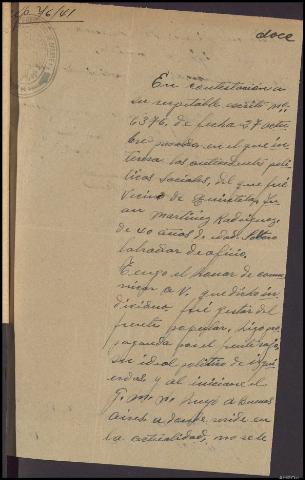 46/41
doce
En contestación a
su respetable escrito nº
6376 de fecha 27 octu
bre proximo en el que in
teresa los antecedentes poli
ticos sociales, del que fué
Vecino de Quintela, Ju
an Martinez Rodriguez
de 40 años de edad, soltero
labrador de oficio,
Tengo el honor de comu
nicar a V. que dicho in
dividuo fué gestor del
frente popular, hizo pro
paganda por el frente rojo,
su ideal politico de izqui
erdas y al iniciarse el
G. M. N. huyo a Buenos
Aires a donde reside en
la actualidad, no se le